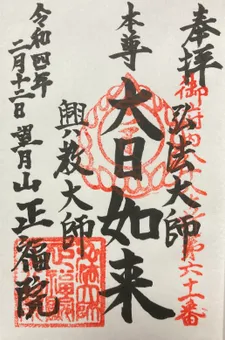 奉拝
弘法大師
御府内八十八ヶ所第六十一番
本尊
大日如来
興教大師
令和四年
二月十二日
望月山 正福院